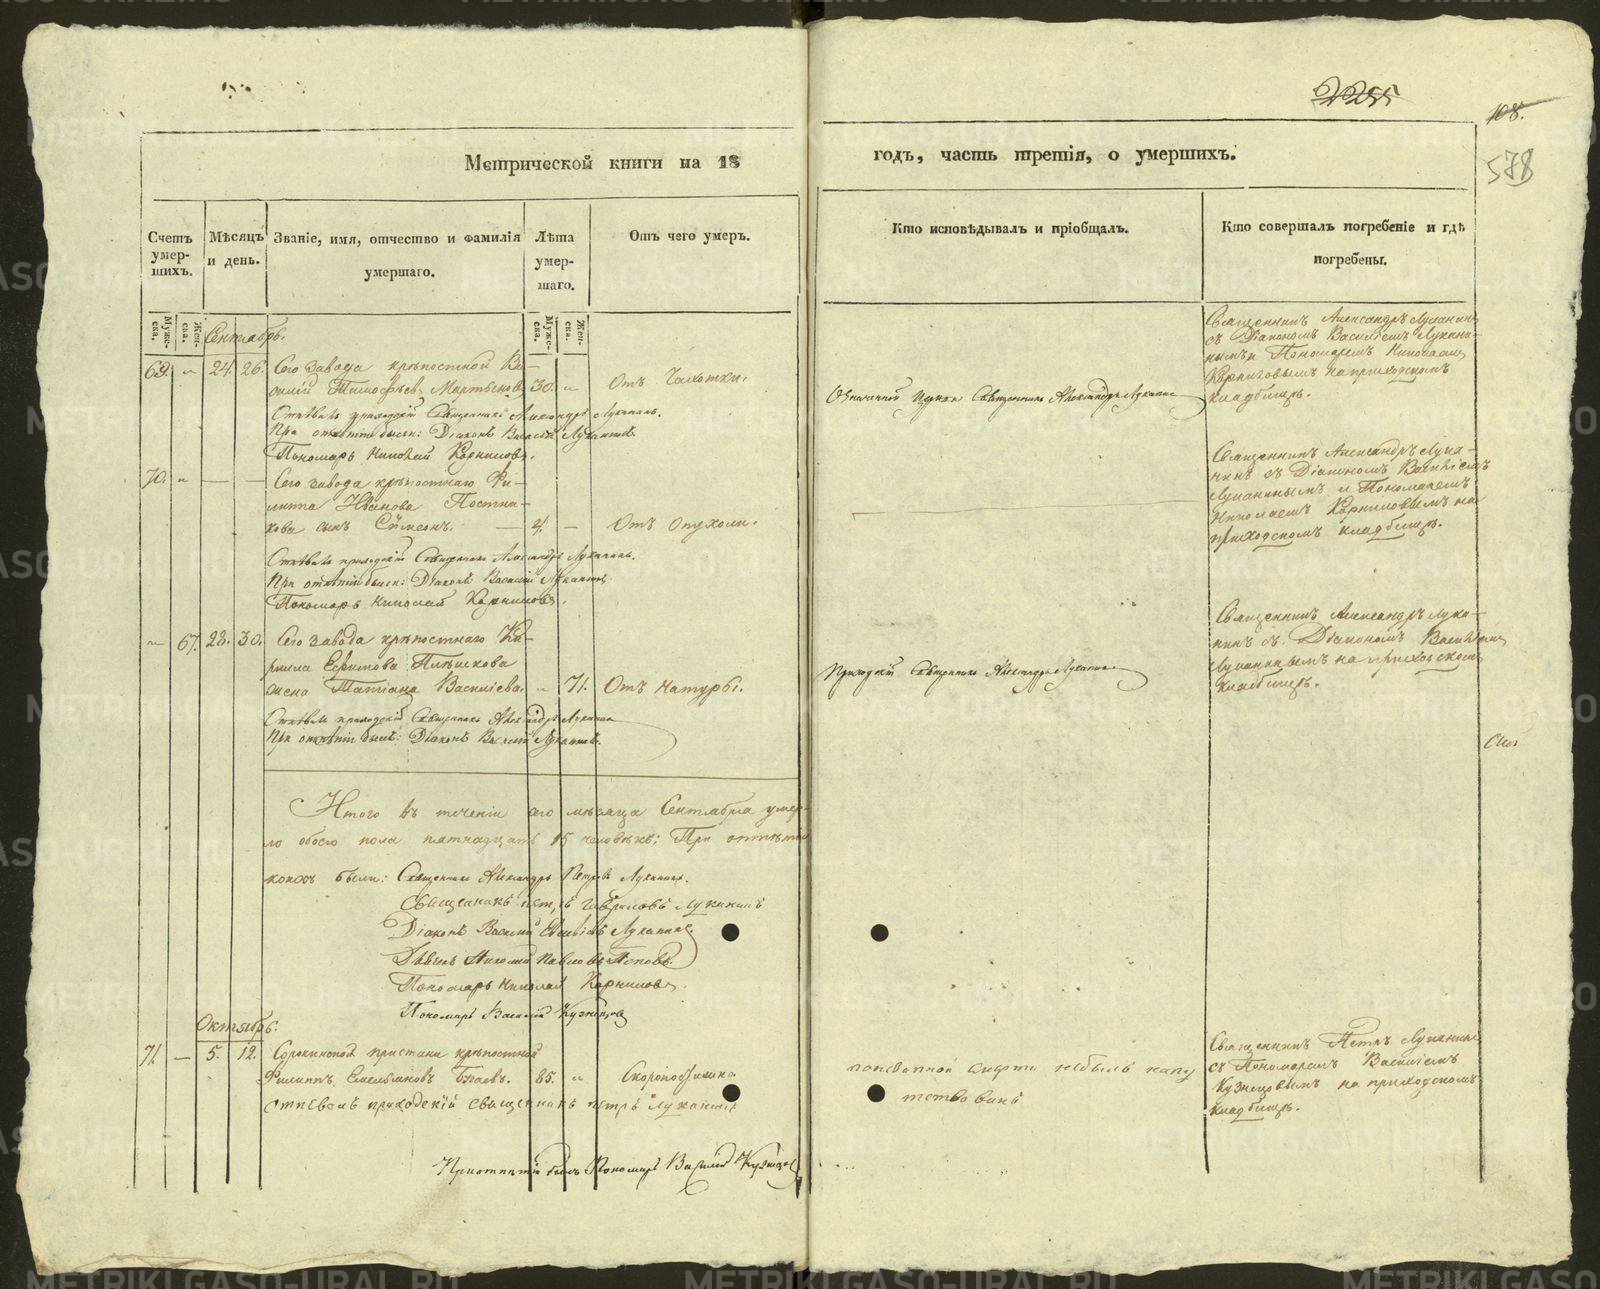 2255
108.
578
Метрической книги на 18
годъ, часть третія, о умершихъ.
Счетъ умер- шихъ.
Мѣсяцъ и день.
Званіе, имя, отчество и фамилія умершаго.
Лѣта умер- шаго.
Отъ чего умеръ.
Кто исповѣдывалъ и пріобщалъ.
Кто совершалъ погребеніе и гдѣ погребены.
Муже- ска.
Жен- ска.
Муже- ска.
Жен- ска.
Сентябрь.
69. „ 24. 26. Сего завода крѣпостной Ва-
силій Тимофѣевъ Мартьяновъ 30. „ Отъ Чахотки.
Священникъ Александръ Луканинъ
съ Діакономъ Василіемъ Лукани-
нымъ и Пономаремъ Николаемъ
Корниловымъ на приходскомъ
кладбищѣ.
Священникъ Александръ Луканинъ
Отпѣвалъ приходскій Священникъ Александръ Луканинъ.
При отпѣтіи были: Діаконъ Василій Луканинъ
Пономарь Николай Корниловъ.
70. „ — — Сего завода крѣпостнаго Фи-
липпа Иванова Постни-
кова сынъ Сѵмеонъ. — 4. — Отъ Опухоли.
Священникъ Александръ Лука-
нинъ съ Діакономъ Василіемъ
Луканинымъ и Пономаремъ
Николаемъ Корниловымъ на
приходскомъ кладбищѣ.
Отпѣвалъ приходскій Священникъ Александръ Луканинъ.
При отпѣтіи были: Діаконъ Василій Луканинъ
Пономарь Николай Корниловъ.
„ 67. 28. 30. Сего завода крѣпостнаго Ки-
рилла Ефимова
жена Татіана Васильева. „ 71. Отъ Натуры.
Приходскій Священникъ Александръ Луканинъ
Священникъ Александръ Лука-
нинъ съ Діакономъ Василіемъ
Луканинымъ на приходскомъ
кладбищѣ.
Отпѣвалъ приходскій Священникъ Александръ Луканинъ
При отпѣтіи былъ: Діаконъ Василій Луканинъ.
Итого въ теченіи сего мѣсяца Сентября умер-
ло обоего пола пятнадцать 15 человѣкъ; При отпѣтіи
коихъ были: Священникъ Александръ Петровъ Луканинъ.
Священникъ Петръ Гавриловъ Луканинъ
Діаконъ Василій Луканинъ
Николай Павловъ Поповъ.
Пономарь Николай Корниловъ.
Пономарь Василій Кузнецовъ
Октябрь.
71. — 5. 12. Сорокинской пристани крѣпостной
Филиппъ Емельяновъ 85. „ Скоропостижно
Отпевалъ приходскій священникъ Петръ Луканинъ
смерти небылъ напу
тствованъ
Священникъ Петръ Луканинъ
съ Пономаремъ Василіемъ
Кузнецовымъ на приходскомъ
кладбищѣ.
При отпѣтіи былъ Пономарь Василій Кузнецовъ
METRIKI.GASO-URAL.RU